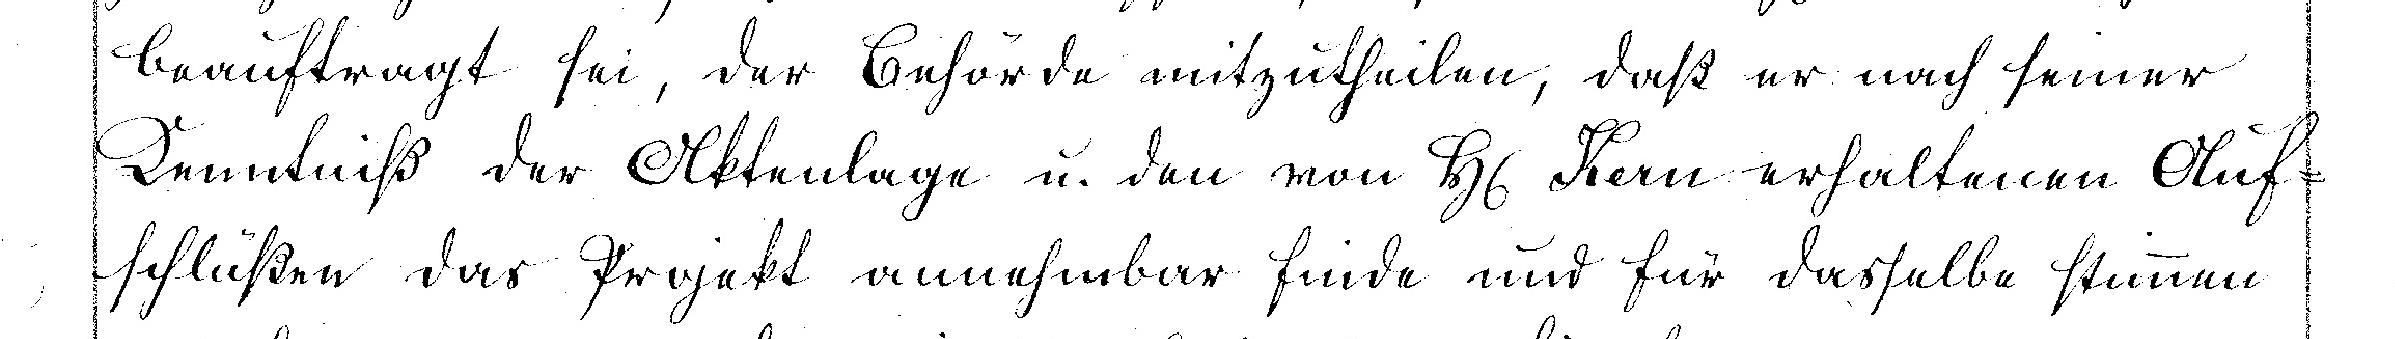 beauftragt sei, der Behörde mitzutheilen, daß er nach seiner
Kenntniß der Aktenlage u. den von H. Kern erhaltenen Auf-
schlüßen das Projekt annehmbar finde und für dasselbe stim̅en